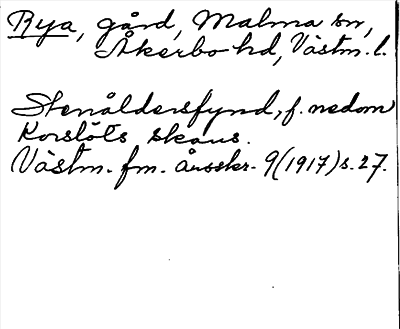 Rya, gård, Malma sn,
Åkerbo hd, Västm. l.
Stenåldersfynd, f. nedom
Korslöts skans.
Västm. fm. årsskr. 9 (1917) s. 27.